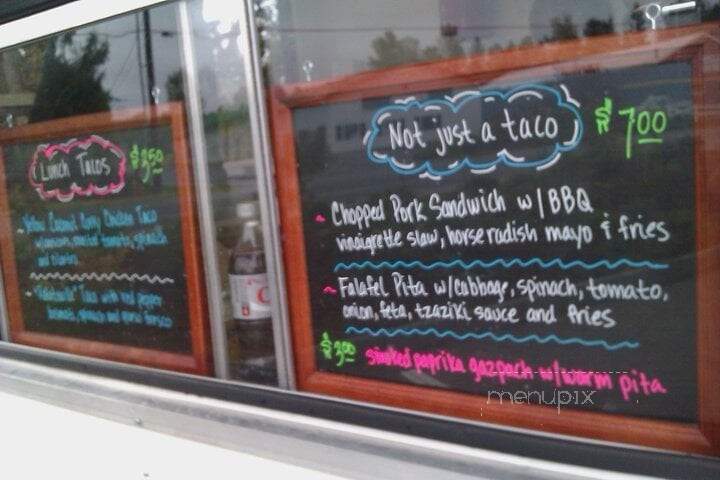 Lunch Tacos
$3.50
~ Yellow Coconut Curry Chicken Taco
tomato, spinach
and cilantro
Taco with red pepper
spinach and queso fresco
Not just a taco
$7.00
~ Chopped Pork Sandwich w/BBQ
vinaigrette slaw, horseradish mayo & fries
~ Falafel Pita w/cabbage, spinach, tomato,
onion, feta, tzaziki sauce and fries
$3.00 smoked paprika gazpach w/warm pita
menupix